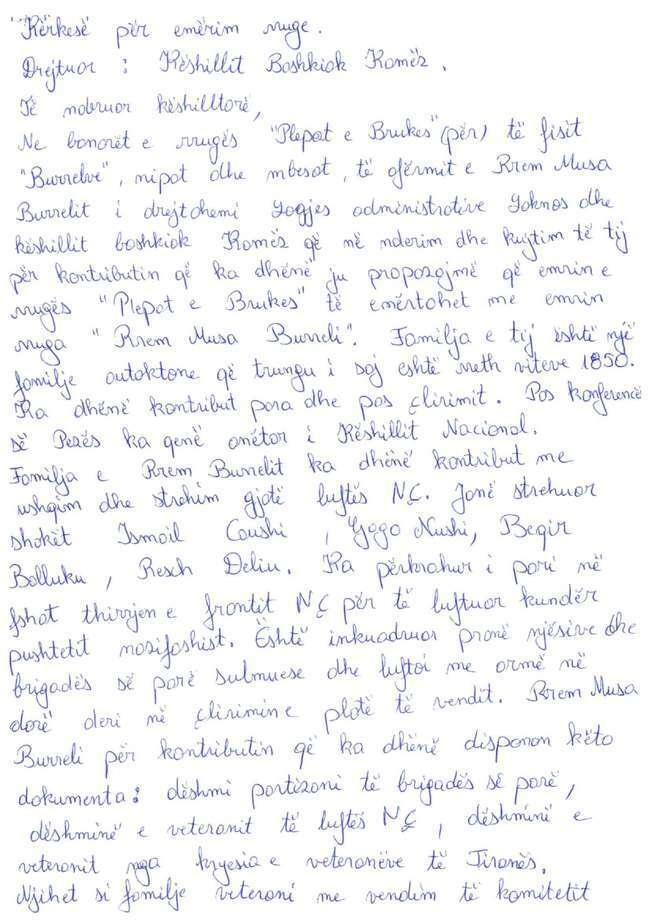 Kërkesë për emërim rruge.
Drejtuar : Këshillit Bashkiak Kamëz.
Të nderuar këshilltorë,
Ne banorët e rrugës "Plepat e Brukes" (për) të fisit
"Burrelve", nipat dhe mbesat, të ofërmit e Rrem Musa
Burrelit i drejtohemi Zogjes administrative Laknas dhe
këshillit bashkiak Kamëz që në nderim dhe kujtim të tij
për kontributin që ka dhënë ju propozojmë që emrin e
rrugës "Plepat e Brukes" të emërtohet me emrin
rruga "Rrem Musa Burreli". Familja e tij është një
familje autoktone që trungu i saj eshtë rreth viteve 1850.
Ka dhënë kontribut para dhe pas çlirimit. Pas konferencë
së Pezës ka qenë anëtar i Këshillit Nacional.
Familja e Rrem Burrelit ka dhënë kontribut me
ushqim dhe strehim gjatë luftës NÇ. Janë strehuar
shokët Ismail Caushi, Gogo Nushi, Beqir
Balluku, Resch Deliu. Ka përkrahur i pari në
fshat thirrjen e frontit NÇ për të luftuar kundër
pushtetit nazifashist. Është inkuadruar pranë njësive dhe
brigadës së parë sulmuese dhe luftoi me armë në
dorë deri në çlirimin e plotë të vendit. Rrem Musa
Burreli për kontributin që ka dhënë disponon këto
dokumenta: dëshmi partizani të brigadës së parë,
dëshminë e veteranit të luftës NÇ, dëshminë e
veteranit nga kryesia e veteranëve të Tiranës.
Njihet si familje veterani me vendim të komitetit